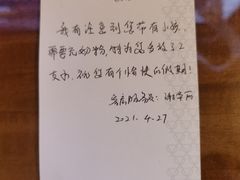 我有注意到您带有小孩，
需要 物，特为您多放了2
支水，祝您有个愉快的假期！
客房服务员：谢
2021.4.27